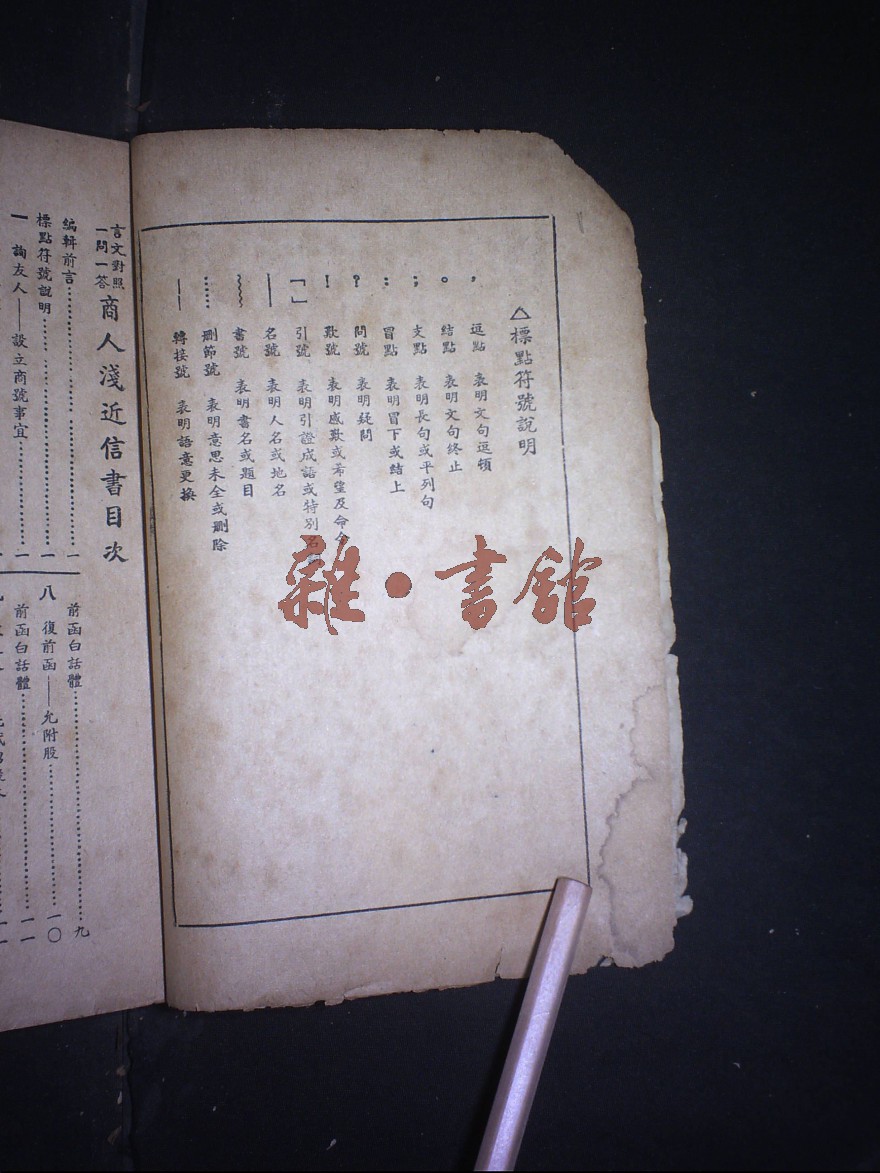 △標點符號說明
， 逗點 表明文句逗頓
。 結點 表明文句終止
； 支點 表明長句或平列句
： 冒點 表明冒下或結上
？ 問號 表明疑問
！ 歎號 表明感歎或希望及命令
「」 引號 表明引證成語或特別名
── 名號 表明人名或地名
﹏﹏ 書號 表明書名或題目
…… 刪節號 表明意思未全或刪除
── 轉接號 表明語意更換
雜•書館
言文對照
一問一答
商人淺近信書目次
編輯前言……一
標點符號說明……一
一 詢友人——設立商號事宜……一
前函白話體……九
八 復前函——允附股……一〇
前函白話體……一一